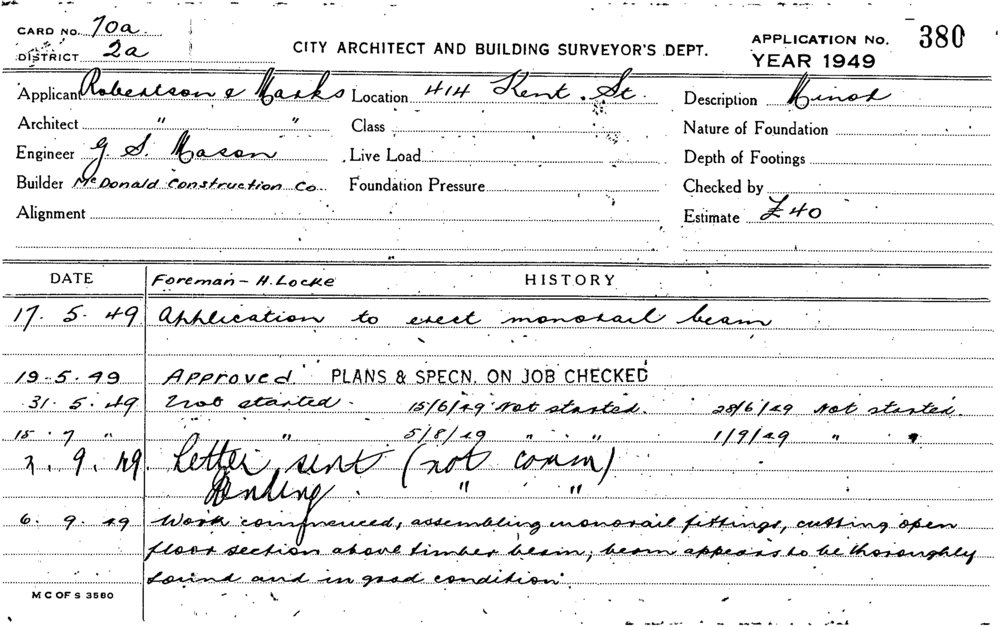 CARD NO. 70a
DISTRICT 2a
CITY ARCHITECT AND BUILDING SURVEYOR'S DEPT.
APPLICATION NO. 380
YEAR 1949
Applicant Robertson & Marks Location 414 Kent St. Description Minor
Architect " " Class Nature of Foundation
Engineer G. S. Mason Live Load Depth of Footings
Builder McDonald Construction Co. Foundation Pressure Checked by
Alignment Estimate £40
DATE Foreman - H. Locke HISTORY
17. 5. 49 Application to erect monorail beam
19-5-49 Approved. PLANS & SPECN. ON JOB CHECKED
31. 5. 49 Not started. 15/6/49 Not started. 28/6/49 Not started.
15. 7 " " 5/8/49 " " 1/9/49 " "
2. 9. 49. Letter sent (not comm)
Pending. " "
6. 9. 49 Work commenced, assembling monorail fittings, cutting open
floor section above timber beam, beam appears to be thoroughly
sound and in good condition.
M C OF S 3580